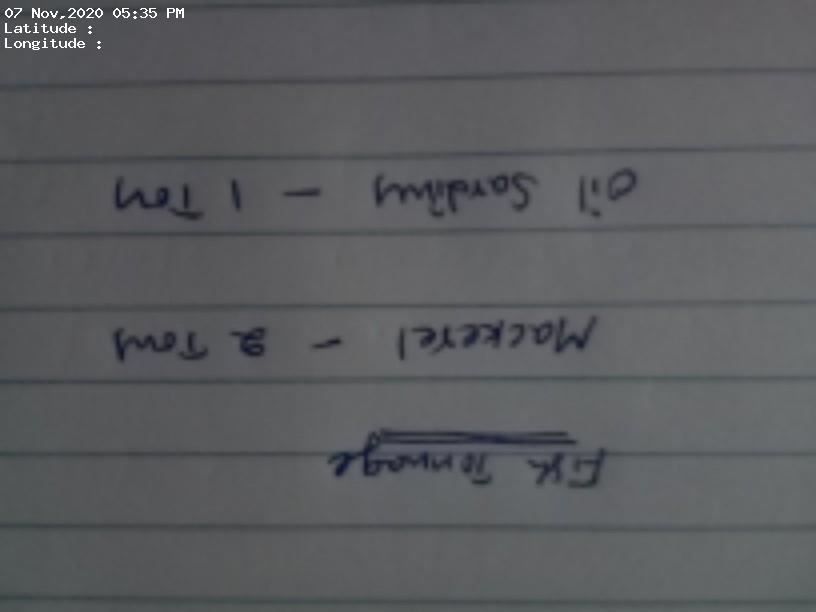 07 Nov,2020 05:35 PM
Latitude :
Longitude :
Fish Tonnage
Mackerel - 2 Tons
Oil Sardines - 1 Ton